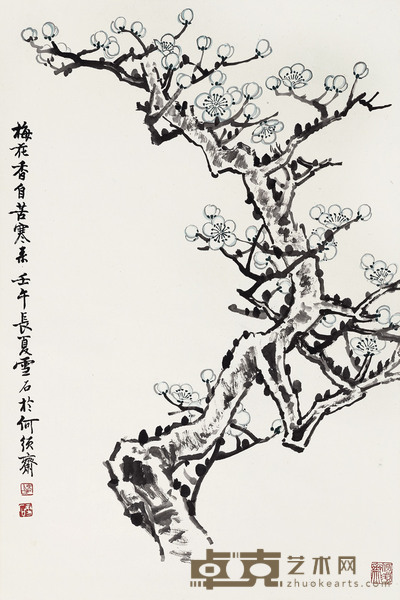 梅花香自苦寒来 壬午長夏雪石於何須齋
卓克艺术网
zhuokearts.com